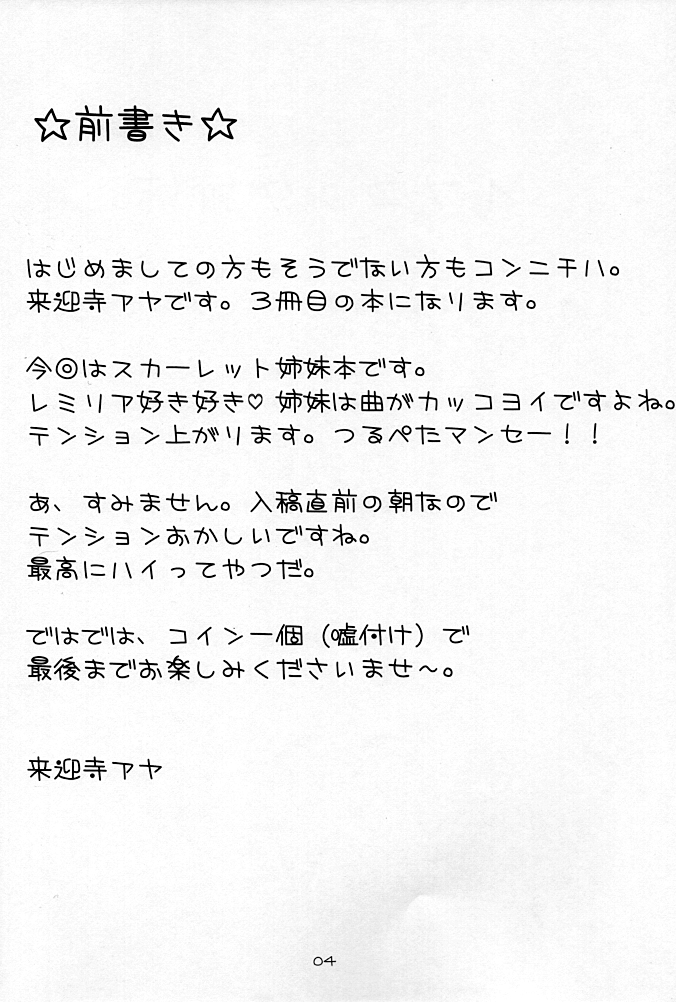 ☆前書き☆
はじめましての方もそうでない方もコンニチハ。
来迎寺アヤです。3冊目の本になります。
今回はスカーレット姉妹本です。
レミリア好き好き♡ 姉妹は曲がカッコヨイですよね。
テンション上がります。つるぺたマンセー！！
あ、すみません。入稿直前の朝なので
テンションおかしいですね。
最高にハイってやつだ。
ではでは、コイン一個（嘘付け）で
最後までお楽しみくださいませ～。
来迎寺アヤ
04